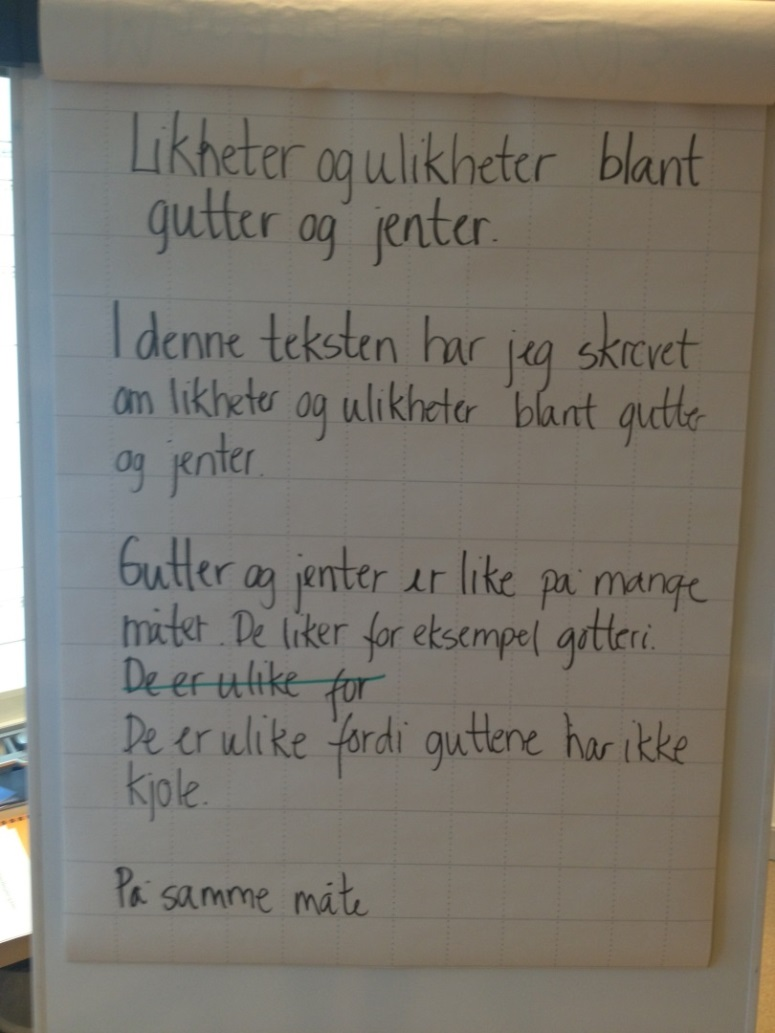 Likheter og ulikheter blant
gutter og jenter.
I denne teksten har jeg skrevet
om likheter og ulikheter blant gutter
og jenter.
Gutter og jenter er like på mange
måter. De liker for eksempel gotteri.
De er ulike for
De er ulike fordi guttene har ikke
kjole.
På samme måte